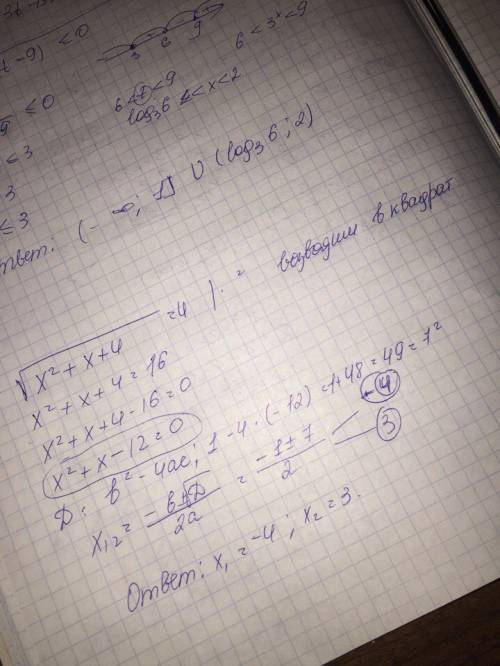 t-9) <0
3 6 9
6 < 3ˣ < 9
≤0
6 < t < 9
log₃6 < x < 2
≤ 3
Ответ: (-∞; 1] ∪ (log₃6; 2)
√x²+x+4 = 4 |·² возводим в квадрат
x²+x+4=16
x²+x+4-16=0
x²+x-12=0
D: b²-4ac, 1-4·(-12)=1+48=49=7²
x₁,₂= -b±√D / 2a = -1±7 / 2 -4 3
Ответ: x₁=-4; x₂=3.